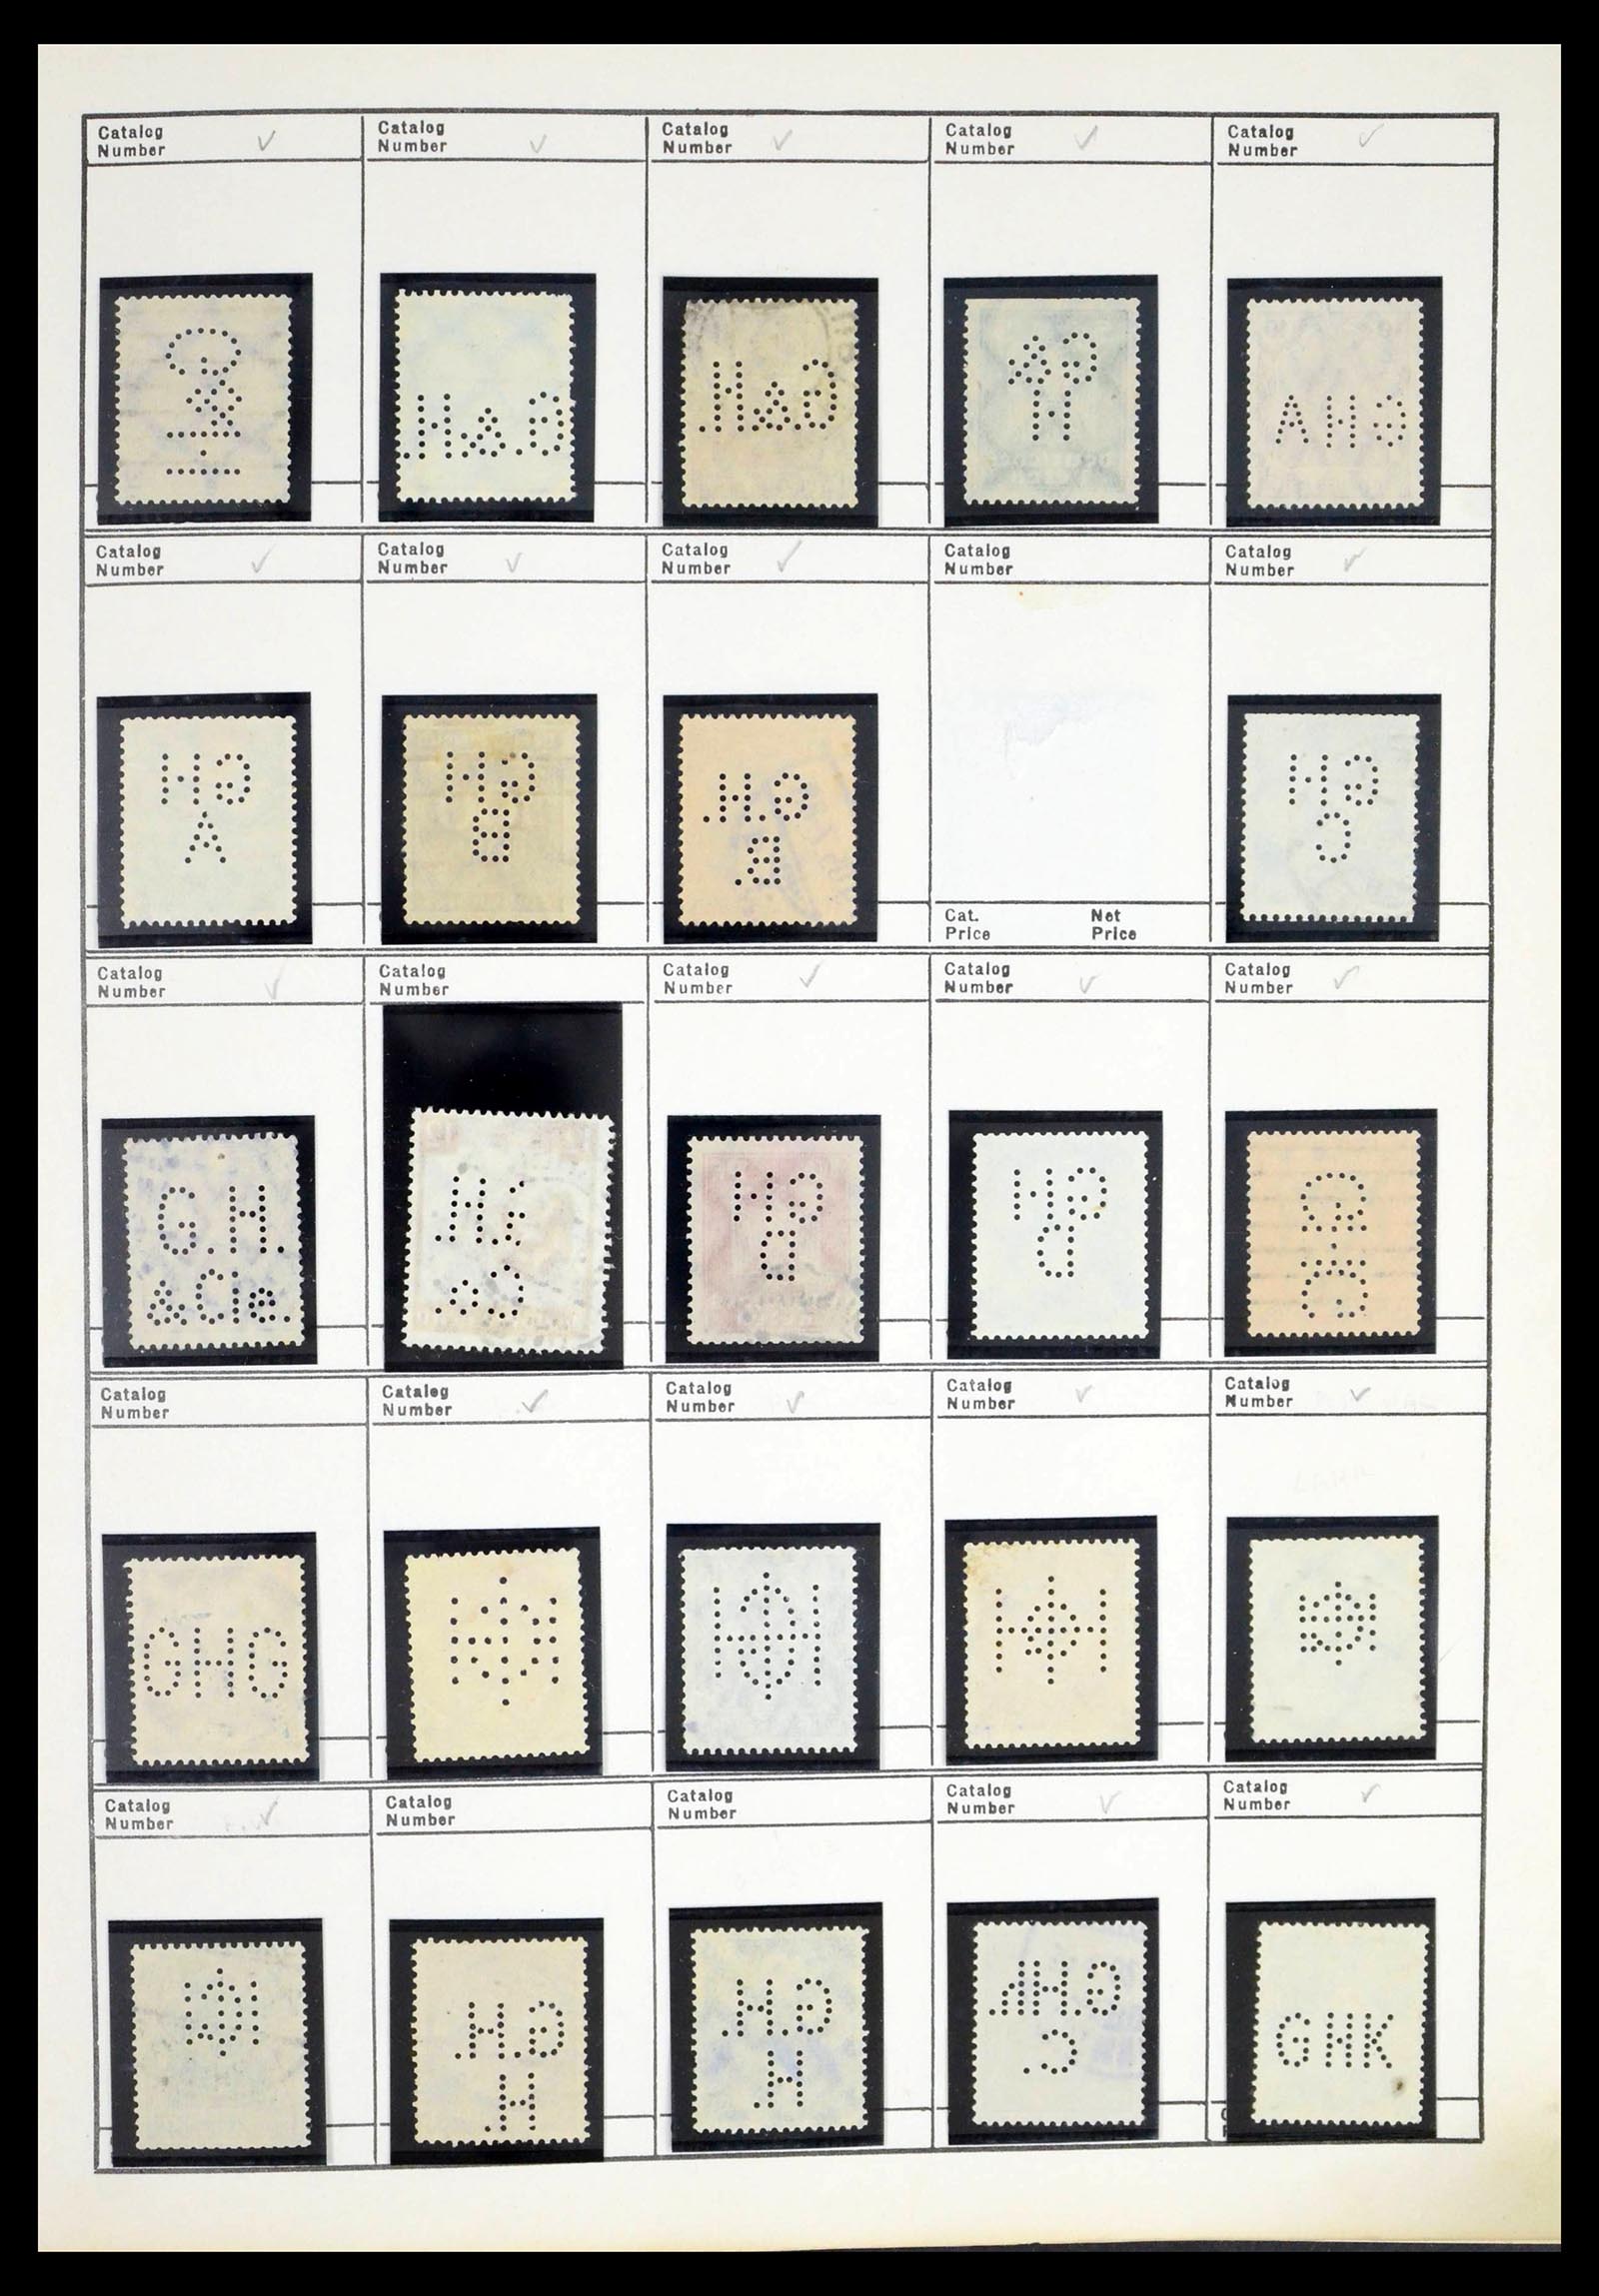 Catalog Number
Catalog Number
Catalog Number
Catalog Number
Catalog Number
G&H
G&H.
G&H.
G&
H
GHA
Catalog Number
Catalog Number
Catalog Number
Catalog Number
Catalog Number
GH
A
GH
B
G.H.
B.
GH
C
Cat. Price
Net Price
Catalog Number
Catalog Number
Catalog Number
Catalog Number
Catalog Number
G.H.
&Cie.
H.
Co.
GH
D
GH
D
Catalog Number
Catalog Number
Catalog Number
Catalog Number
Catalog Number
GHG
Catalog Number
Catalog Number
Catalog Number
Catalog Number
Catalog Number
G.H.
H.
G.H.
H.
C.
GHK